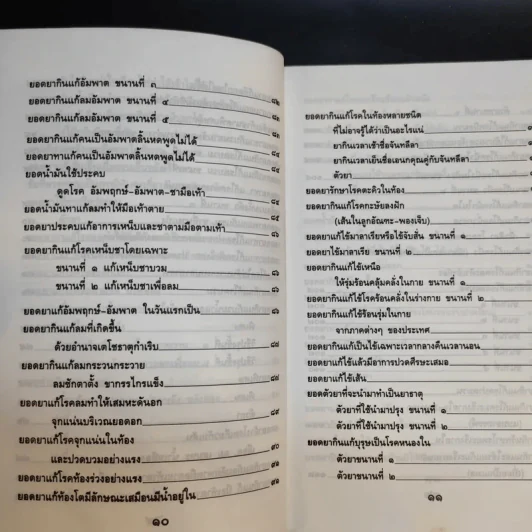 ยอดยากินแก้อัมพาต ขนานที่ ๓
ยอดยากินแก้ลมอัมพาต ขนานที่ ๔
ยอดยากินแก้ลมอัมพาต ขนานที่ ๕
ยอดยากินแก้คนเป็นอัมพาตลิ้นหดพูดไม่ได้
ยอดยาทาแก้คนเป็นอัมพาตลิ้นหดพูดไม่ได้
ยอดน้ำมันใช้ประคบ
ดูดโรค อัมพฤกษ์-อัมพาต-ชามือเท้า
ยอดน้ำมันทาแก้ลมทำให้มือเท้าตาย
ยอดยาประคบแก้อาการเหน็บและชาตามมือตามเท้า
ยอดยากินแก้โรคเหน็บชาโดยเฉพาะ
ขนานที่ ๑ แก้เหน็บชาบวม
ขนานที่ ๒ แก้เหน็บชาเพื่อลม
ยอดยาแก้อัมพฤกษ์-อัมพาต ในวันแรกเป็น
ยอดยากินแก้ลมที่เกิดขึ้น
ด้วยอำนาจเตโชธาตุกำเริบ
ยอดยากินแก้ลมกระวนกระวาย
ลมชักตาตั้ง ขากรรไกรแข็ง
ยอดยาแก้โรคลมทำให้เสมหะตันอก
จุกแน่นบริเวณยอดอก
ยอดยาแก้โรคจุกแน่นในท้อง
และปวดบวมอย่างแรง
ยอดยาแก้โรคท้องร่วงอย่างแรง
ยอดยาแก้ท้องโตมีลักษณะเสมือนมีน้ำอยู่ใน
๑๐
ยอดยากินแก้โรคในท้องหลายชนิด
ที่ไม่อาจรู้ได้ว่าเป็นอะไรแน่
ยากินเวลาเช้าชื่อจันทลีลา
ยากินเวลาเย็นชื่อเอนกคุณคู่กับจันทลีลา
ตัวยา
ยอดยารักษาโรคตะคิวในท้อง
ยอดยากินแก้โรคกะษัยลงฝัก
(เส้นในลูกอัณฑะ-พองเจ็บ)
ยอดยาแก้ไข้มาลาเรียหรือไข้จับสั่น ขนานที่ ๑
ยอดยาไข้มาลาเรีย ขนานที่ ๒
ยอดยากินแก้ไข้เหนือ
ให้รุ่มร้อนคลุ้มคลั่งในกาย ขนานที่ ๑
ยอดยากินแก้ไข้โรคร้อนคลั่งในร่างกาย ขนานที่ ๒
ยอดยากินแก้ไข้ร้อนรุ่มในกาย
จากภาคต่างๆ ของประเทศ
ยอดยากินแก้เป็นไข้เฉพาะเวลากลางคืนเวลานอน
ยอดยาแก้ไข้แล้วมีอาการปวดศีรษะเสมอ
ยอดยาแก้ไข้เส้น
ยอดตัวยาที่จะนำมาทำเป็นยาธาตุ
ตัวยาที่ใช้นำมาปรุง ขนานที่ ๑
ตัวยาที่ใช้นำมาปรุง ขนานที่ ๒
ยอดยากินแก้บุรุษเป็นโรคหนองใน
ตัวยาขนานที่ ๑
ตัวยาขนานที่ ๒
๑๑